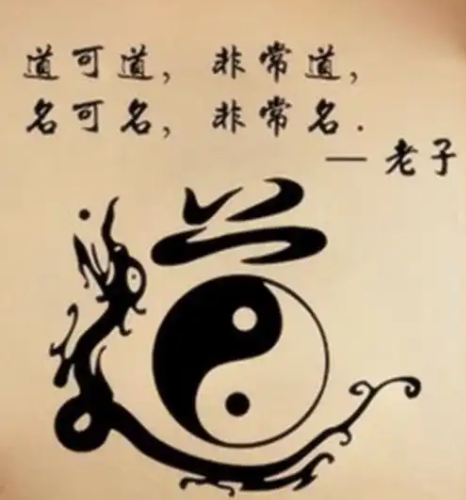 道可道，非常道，
名可名，非常名.
— 老子
道